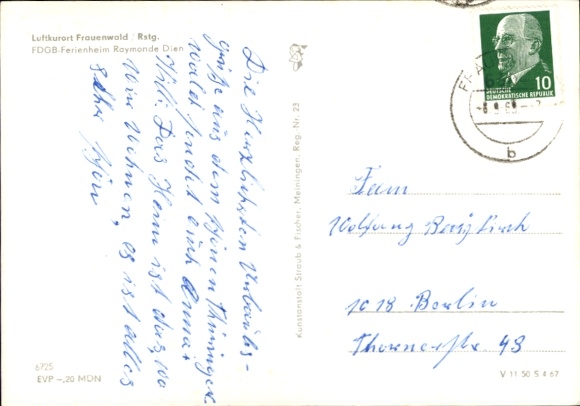 Luftkurort Frauenwald / Rstg.
FDGB-Ferienheim Raymonde Dien
Die Herzlichsten Urlaubs-
grüße aus dem schönen Thüringer
wald sendet euch Anna +
Willi. Das Heim ist das, wo
wir wohnen, es ist alles
sehr schön
6725
EVP –,20 MDN
Kunstanstalt Straub & Fischer, Meiningen, Reg. Nr. 23
10
DEUTSCHE
DEMOKRATISCHE REPUBLIK
b
Fam
Wolfgang
1018 Berlin
Thornerstr 48
V 11 50 S 4 67